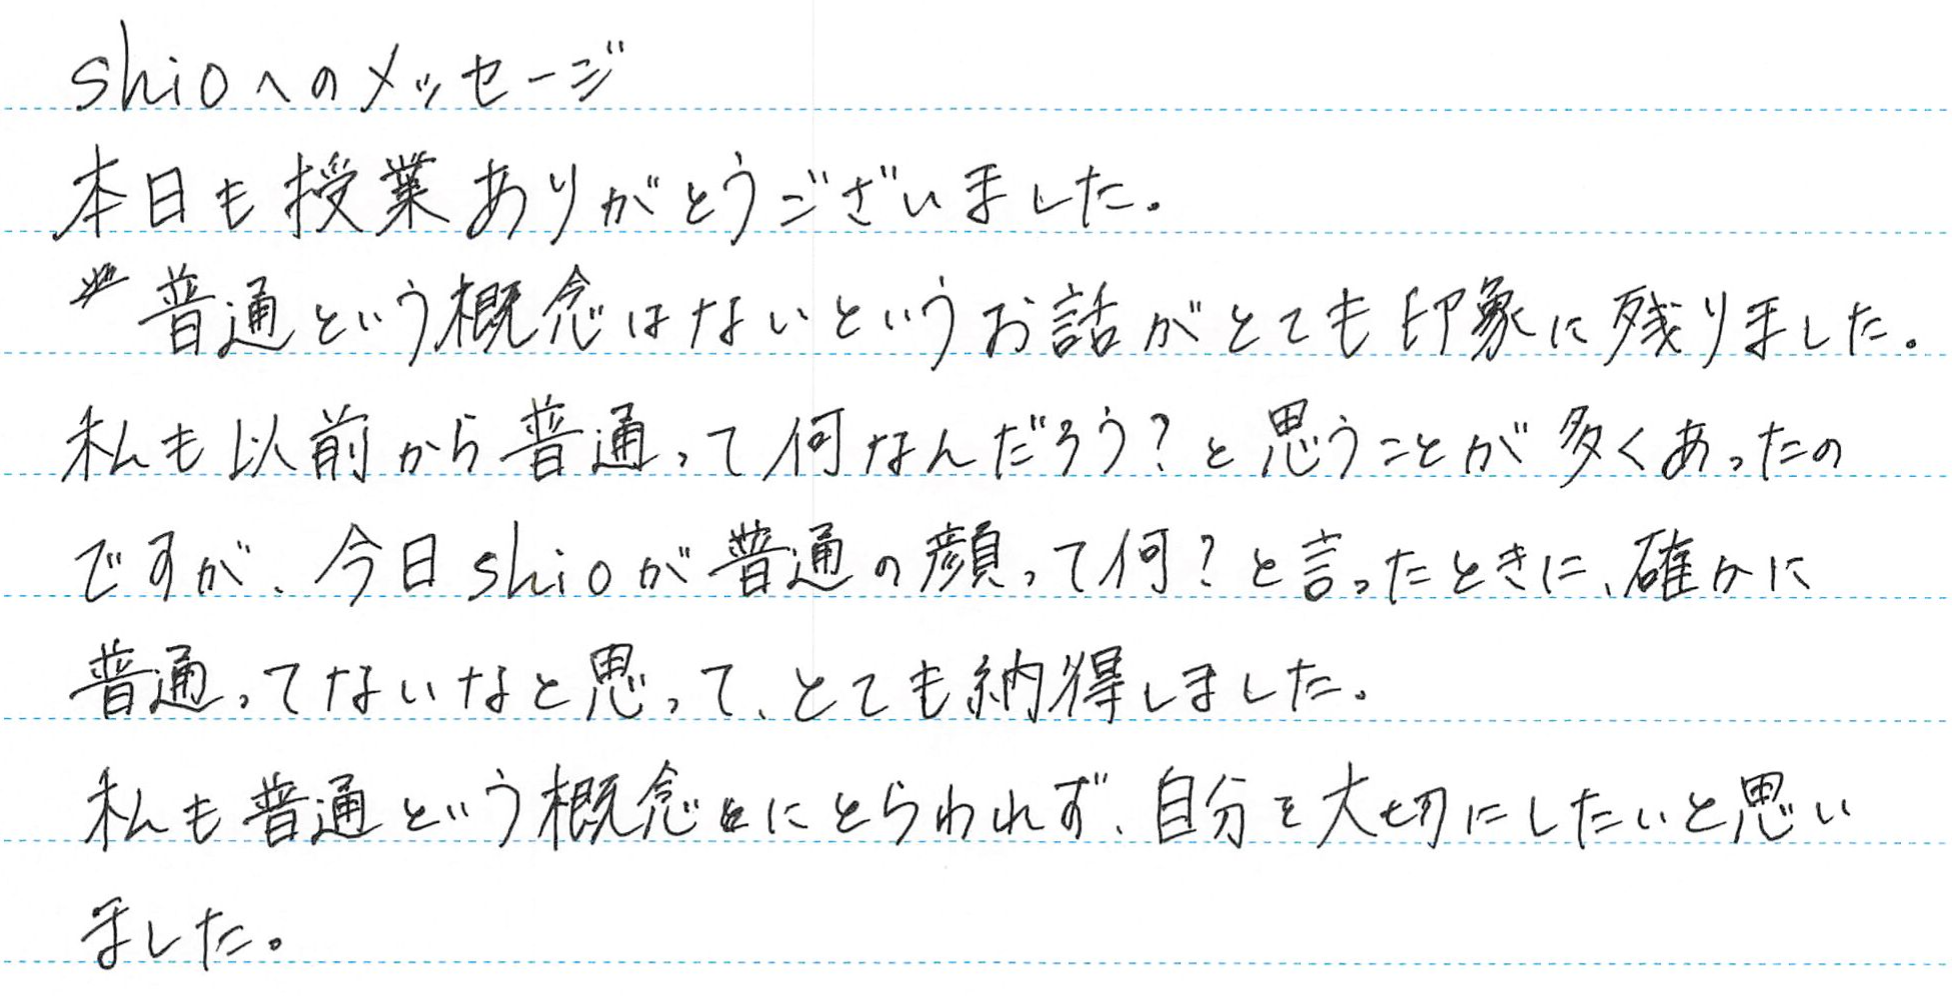 shioへのメッセージ
本日も授業ありがとうございました。
普通という概念はないというお話がとても印象に残りました。
私も以前から普通って何なんだろう？と思うことが多くあったの
ですが、今日shioが普通の顔って何？と言ったときに、確かに
普通ってないなと思って、とても納得しました。
私も普通という概念にとらわれず、自分を大切にしたいと思い
ました。